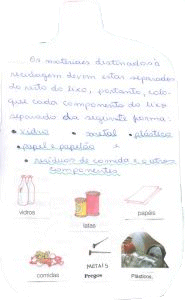 Os materiais destinados à
reciclagem devem estar separados
do resto do lixo, portanto, colo-
que cada componente do lixo
separado da seguinte forma:
• vidro • metal • plástico
• papel e papelão
• resíduos de comida e outros
componentes.
vidros
latas
papéis
comidas
METAIS
Pregos
Plásticos.